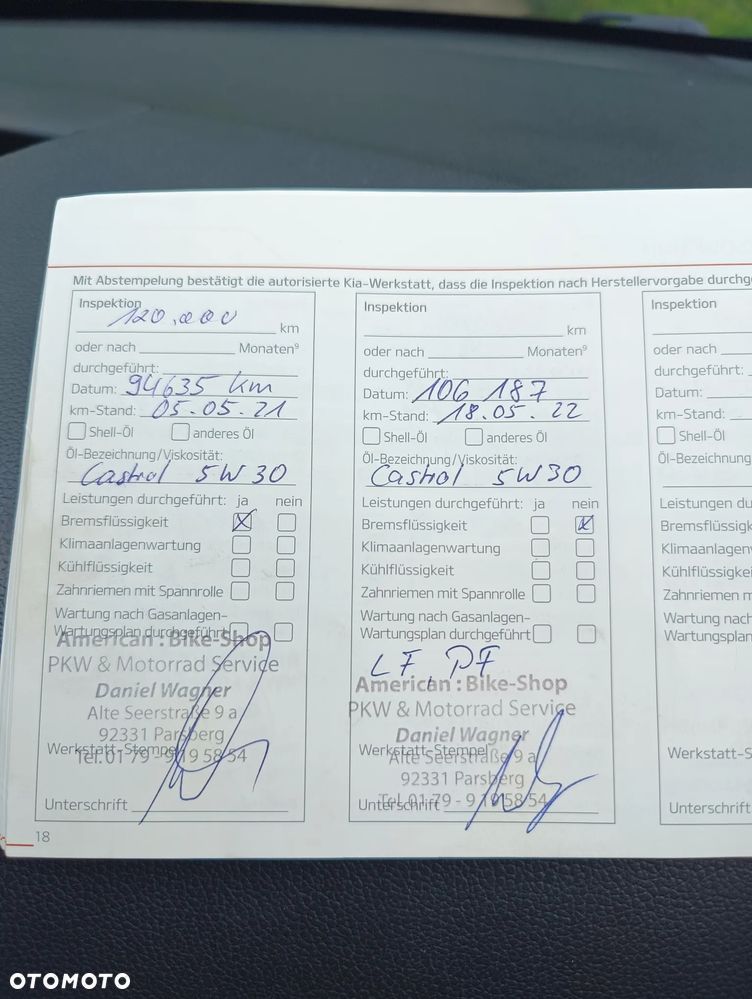 Mit Abstempelung bestätigt die autorisierte Kia-Werkstatt, dass die Inspektion nach Herstellervorgabe durchge
Inspektion
120.000 km
oder nach Monaten⁹
durchgeführt:
Datum: 94635 km
km-Stand: 05.05.21
Shell-Öl anderes Öl
Öl-Bezeichnung/Viskosität:
Castrol 5W30
Leistungen durchgeführt: ja nein
Bremsflüssigkeit
Klimaanlagenwartung
Kühlflüssigkeit
Zahnriemen mit Spannrolle
Wartung nach Gasanlagen-
Wartungsplan durchgeführt
American:Bike-Shop
PKW & Motorrad Service
Daniel Wagner
Alte Seerstraße 9 a
92331 Parsberg
Werkstatt-Stempel
Tel. 01 79 - 9 19 58 54
Unterschrift
18
Inspektion
km
oder nach Monaten⁹
durchgeführt:
Datum: 106 187
km-Stand: 18.05.22
Shell-Öl anderes Öl
Öl-Bezeichnung/Viskosität:
Castrol 5W30
Leistungen durchgeführt: ja nein
Bremsflüssigkeit
Klimaanlagenwartung
Kühlflüssigkeit
Zahnriemen mit Spannrolle
Wartung nach Gasanlagen-
Wartungsplan durchgeführt
LF, PF
American:Bike-Shop
PKW & Motorrad Service
Daniel Wagner
Werkstatt-Stempel
Alte Seerstraße 9 a
92331 Parsberg
Unterschrift
Tel. 01 79 - 9 19 58 54
Inspektion
oder nach
durchgeführt:
Datum:
km-Stand:
Shell-Öl
Öl-Bezeichnung
Leistungen du
Bremsflüssigk
Klimaanlagen
Kühlflüssigkei
Zahnriemen m
Wartung nach
Wartungsplan
Werkstatt-S
Unterschrift
OTOMOTO